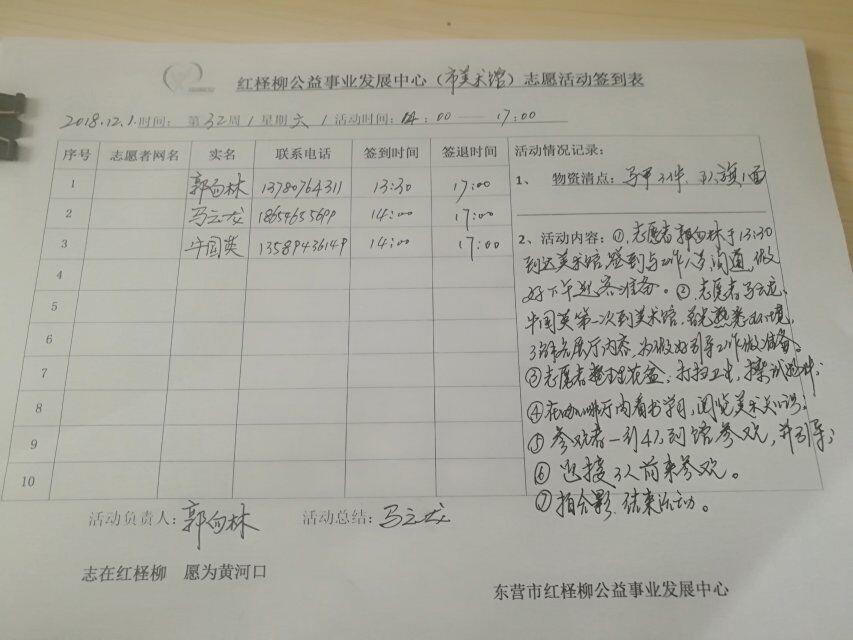 红柽柳公益事业发展中心（市美术馆）志愿活动签到表
2018.12.1.时间：第32周/星期六/活动时间：14：00——17：00
序号 志愿者网名 实名 联系电话 签到时间 签退时间
1 郭向林 13780764311 13:30 17:00
2 马云龙 18654655699 14:00 17:00
3 牛国英 13589436149 14:00 17:00
4
5
6
7
8
9
10
活动情况记录：
1、 物资清点：马甲3件、队旗1面
2、活动内容：①、志愿者郭向林于13:30
到达美术馆，签到与工作人员沟通，做
好下午迎客准备。②、志愿者马云龙、
牛国英第一次到美术馆，首先熟悉环境，
了解各展厅内容，为做好引导工作做准备。
③志愿者整理花盆，打扫卫生，擦
④在咖啡厅内看书学习，阅览美术知识；
⑤参观者一行4人到馆参观，并引导；
⑥迎接3人前来参观。
⑦拍合影，结束活动。
活动负责人：郭向林 活动总结：马云龙
志在红柽柳 愿为黄河口
东营市红柽柳公益事业发展中心